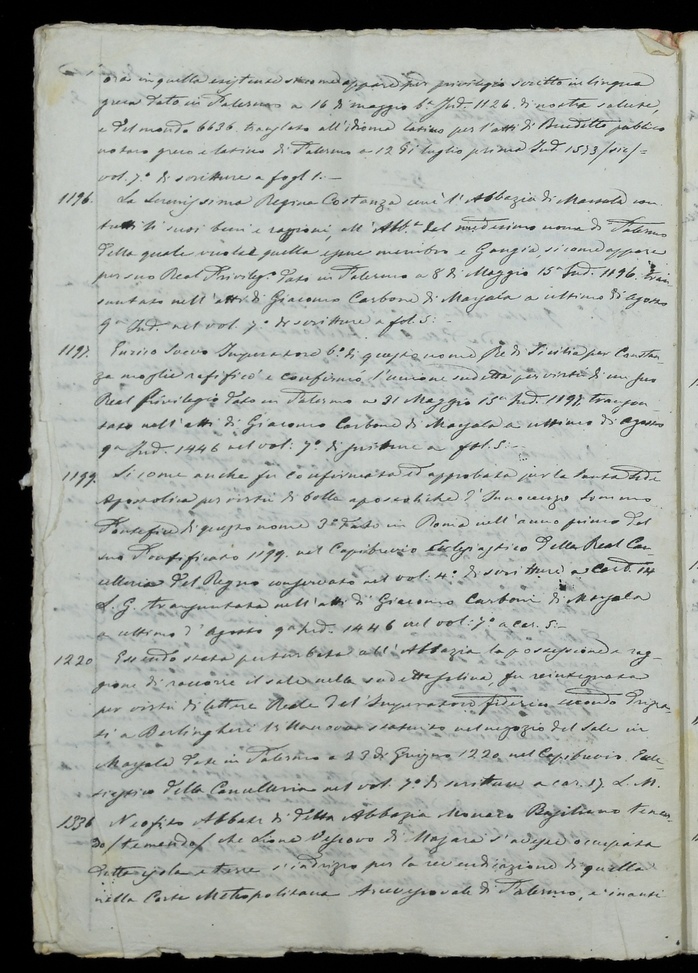 ora in quella esistense sicome appare per privilegio scritto in lingua
greca dato in Palermo a 16 di maggio 6ª Ind. 1126. di nostra salute,
e del mondo 6636. traslato all'idioma latino per l'atti di Benedetto publico
notaro greco e latino di Palermo a 12 di luglio prima Ind 1573/sic/=
vol. 7º di scritture a fogl 1:—
1196. La Serenissima Regina Costanza unì l'Abbazia di Marsala con
tutti li suoi beni e ragioni, all'Abbª del medesimo nome di Palermo
della quale vuole quella esser membro e Gangia, si come appare
per suo Real Privilegº dato in Palermo a 8 di Maggio 15ª Ind. 1196. tran
suntato nell'atti di Giacomo Carbone di Marsala a ultimo di agosto
9ª Ind. nel vol. 7º di scritture a fol. 5:—
1197. Enrico Suevo Imperatore 6º di questo nome Re di Sicilia per Costan-
za moglie ratificò e confirmò l'unione sudetta per virtù di un suo
Real Privilegio dato in Palermo a 21 Maggio 15ª Ind. 1197. transon-
tato nell'atti di Giacomo Carbone di Marsala a ultimo di agosto
9ª Ind. 1446 nel vol: 7º di scritture a fol. 5:—
1199. Si come anche fu confirmata ed approbata per la Santa Sede
Apostolica per virtù di bolle apostoliche d'Innocenzo Sommo
Pontefice di questo nome 3º dato in Roma nell'anno primo del
suo Pontificato 1199. nel Capibrevio Eclesiastico della Real Can-
celleria del Regno conservato nel vol: 4º di scritture a car. 14
L. G. transuntata nell'atti di Giacomo Carbone di Marsala
a ultimo d'Agosto 9ª Ind. 1446 nel vol: 7º a car. 5:—
1220 Essendo stata perturbata all'Abbazia la possessione e rag-
gione di raccorre il sale nella sudetta salina, fu reintegrata
per virtù di lettere Reale del'Imperatore Federico secondo
a Berlingheri statuito nel negozio del sale in
Marsala date in Palermo a 23 di Giugno 1220 nel Capibrevio. Ecle-
siastico della Cancelleria nel vol. 7º di scritture a car. 17. L. M.
1336 Neofito Abbate di detta Abbazia Monaco Basiliano tenen-
do /temendo/ che Leone Vescovo di Mazara s'avesse occupata
detta isola e torre s'indrizzò per la revendicazione di quella
nella Corte Metropolitana Arcivescovale di Palermo, e inanti